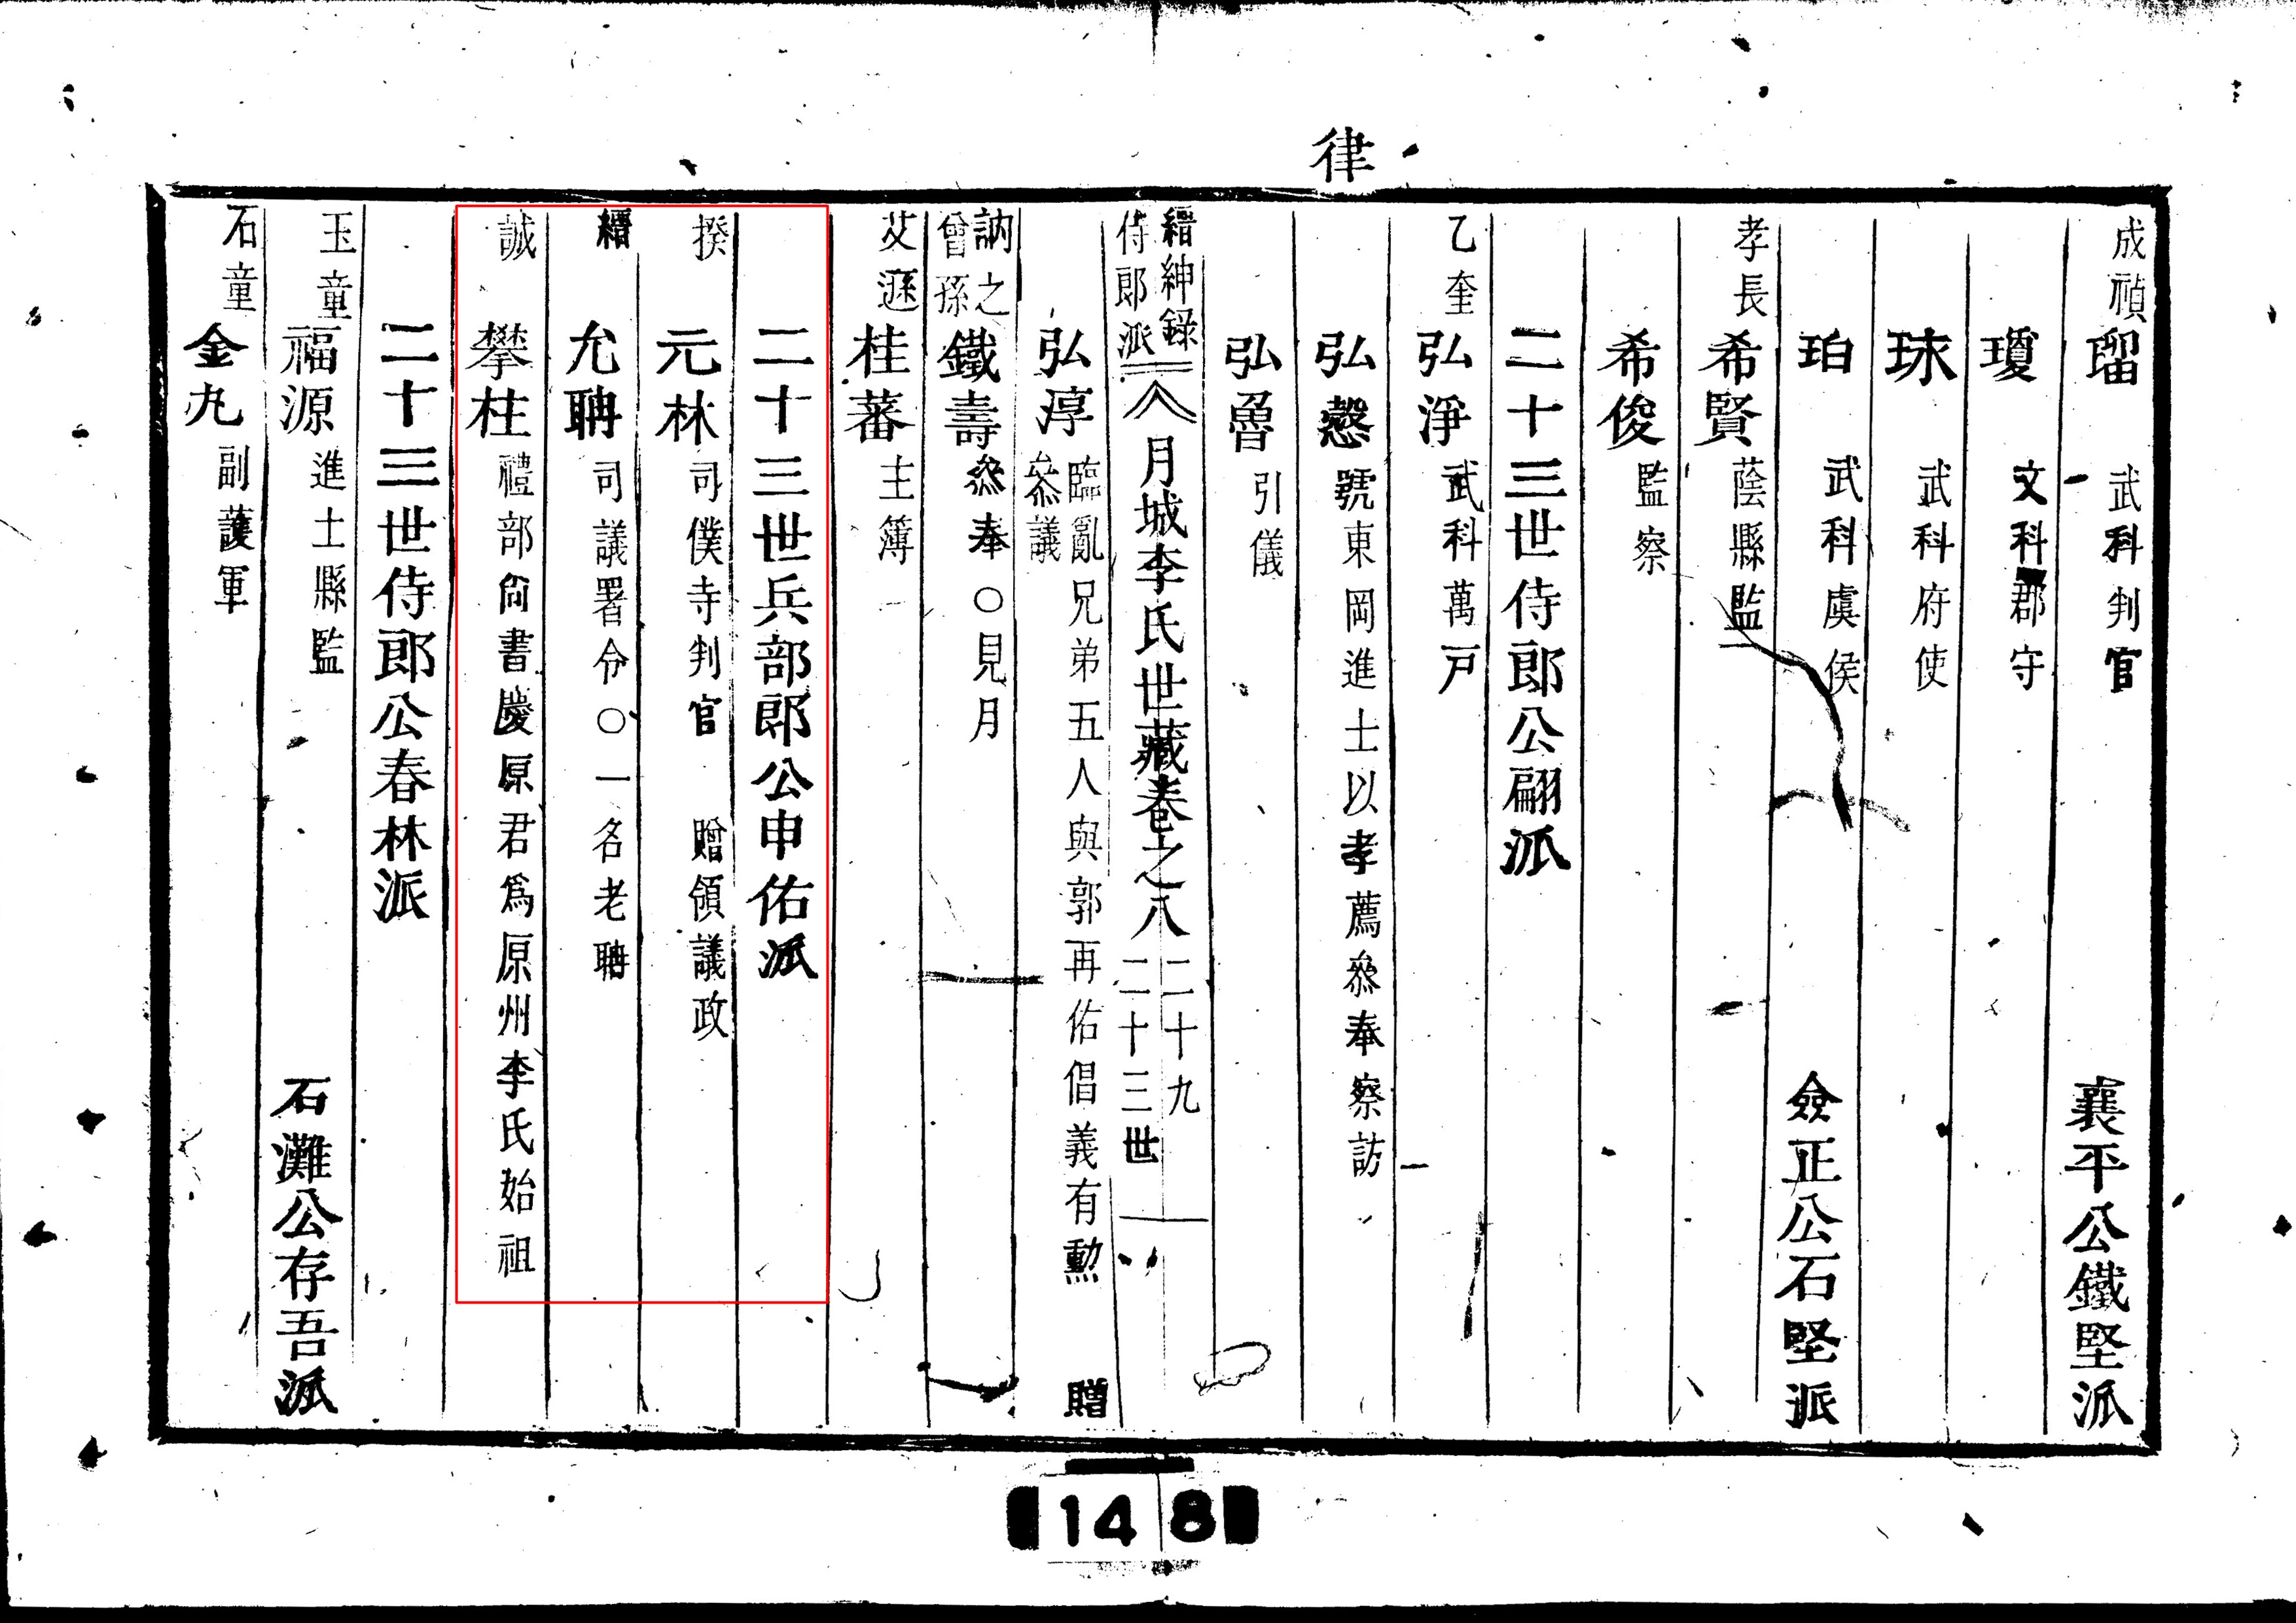 律
成禎 瑠 武科判官 襄平公鐵堅派
瓊 文科郡守
琜 武科府使
珀 武科虞侯 僉正公石堅派
孝長 希賢 蔭縣監
希俊 監察
二十三世侍郎公翮派
乙奎 弘淨 武科萬戶
弘慤 號東岡進士以孝薦叅奉察訪
弘魯 引儀
縉紳錄 月城李氏世藏卷之八 二十九
侍郎派 二十三世
弘淳 臨亂兄弟五人與郭再佑倡義有勳 贈
叅議
訥之曾孫 鐵壽 叅奉○見月
艾遜 桂蕃 主簿
二十三世兵部郎公申佑派
揆 元林 司僕寺判官 贈領議政
縉 允聃 司議署令○一名老聃
誠 攀桂 禮部尙書慶原君爲原州李氏始祖
二十三世侍郎公春林派
玉童 福源 進士縣監 石灘公存吾派
石童 金丸 副護軍
148